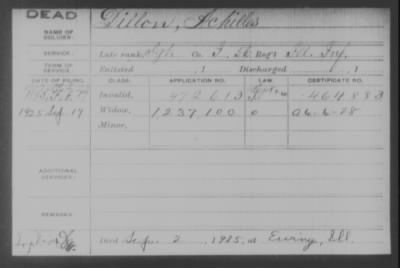 DEAD
Dillon, Achilles
NAME OF
SOLDIER:
SERVICE: Late rank, Co. Reg't Ill. Inf.
TERM OF
SERVICE: Enlisted , 1 Discharged , 1
DATE OF FILING. CLASS. APPLICATION NO. LAW. CERTIFICATE NO.
Invalid, 472613 464883
1925 Sep. 19 Widow, 1,237,100 o
Minor,
ADDITIONAL
SERVICES:
REMARKS:
Died 2 , 1925, at Ewing, Ill.